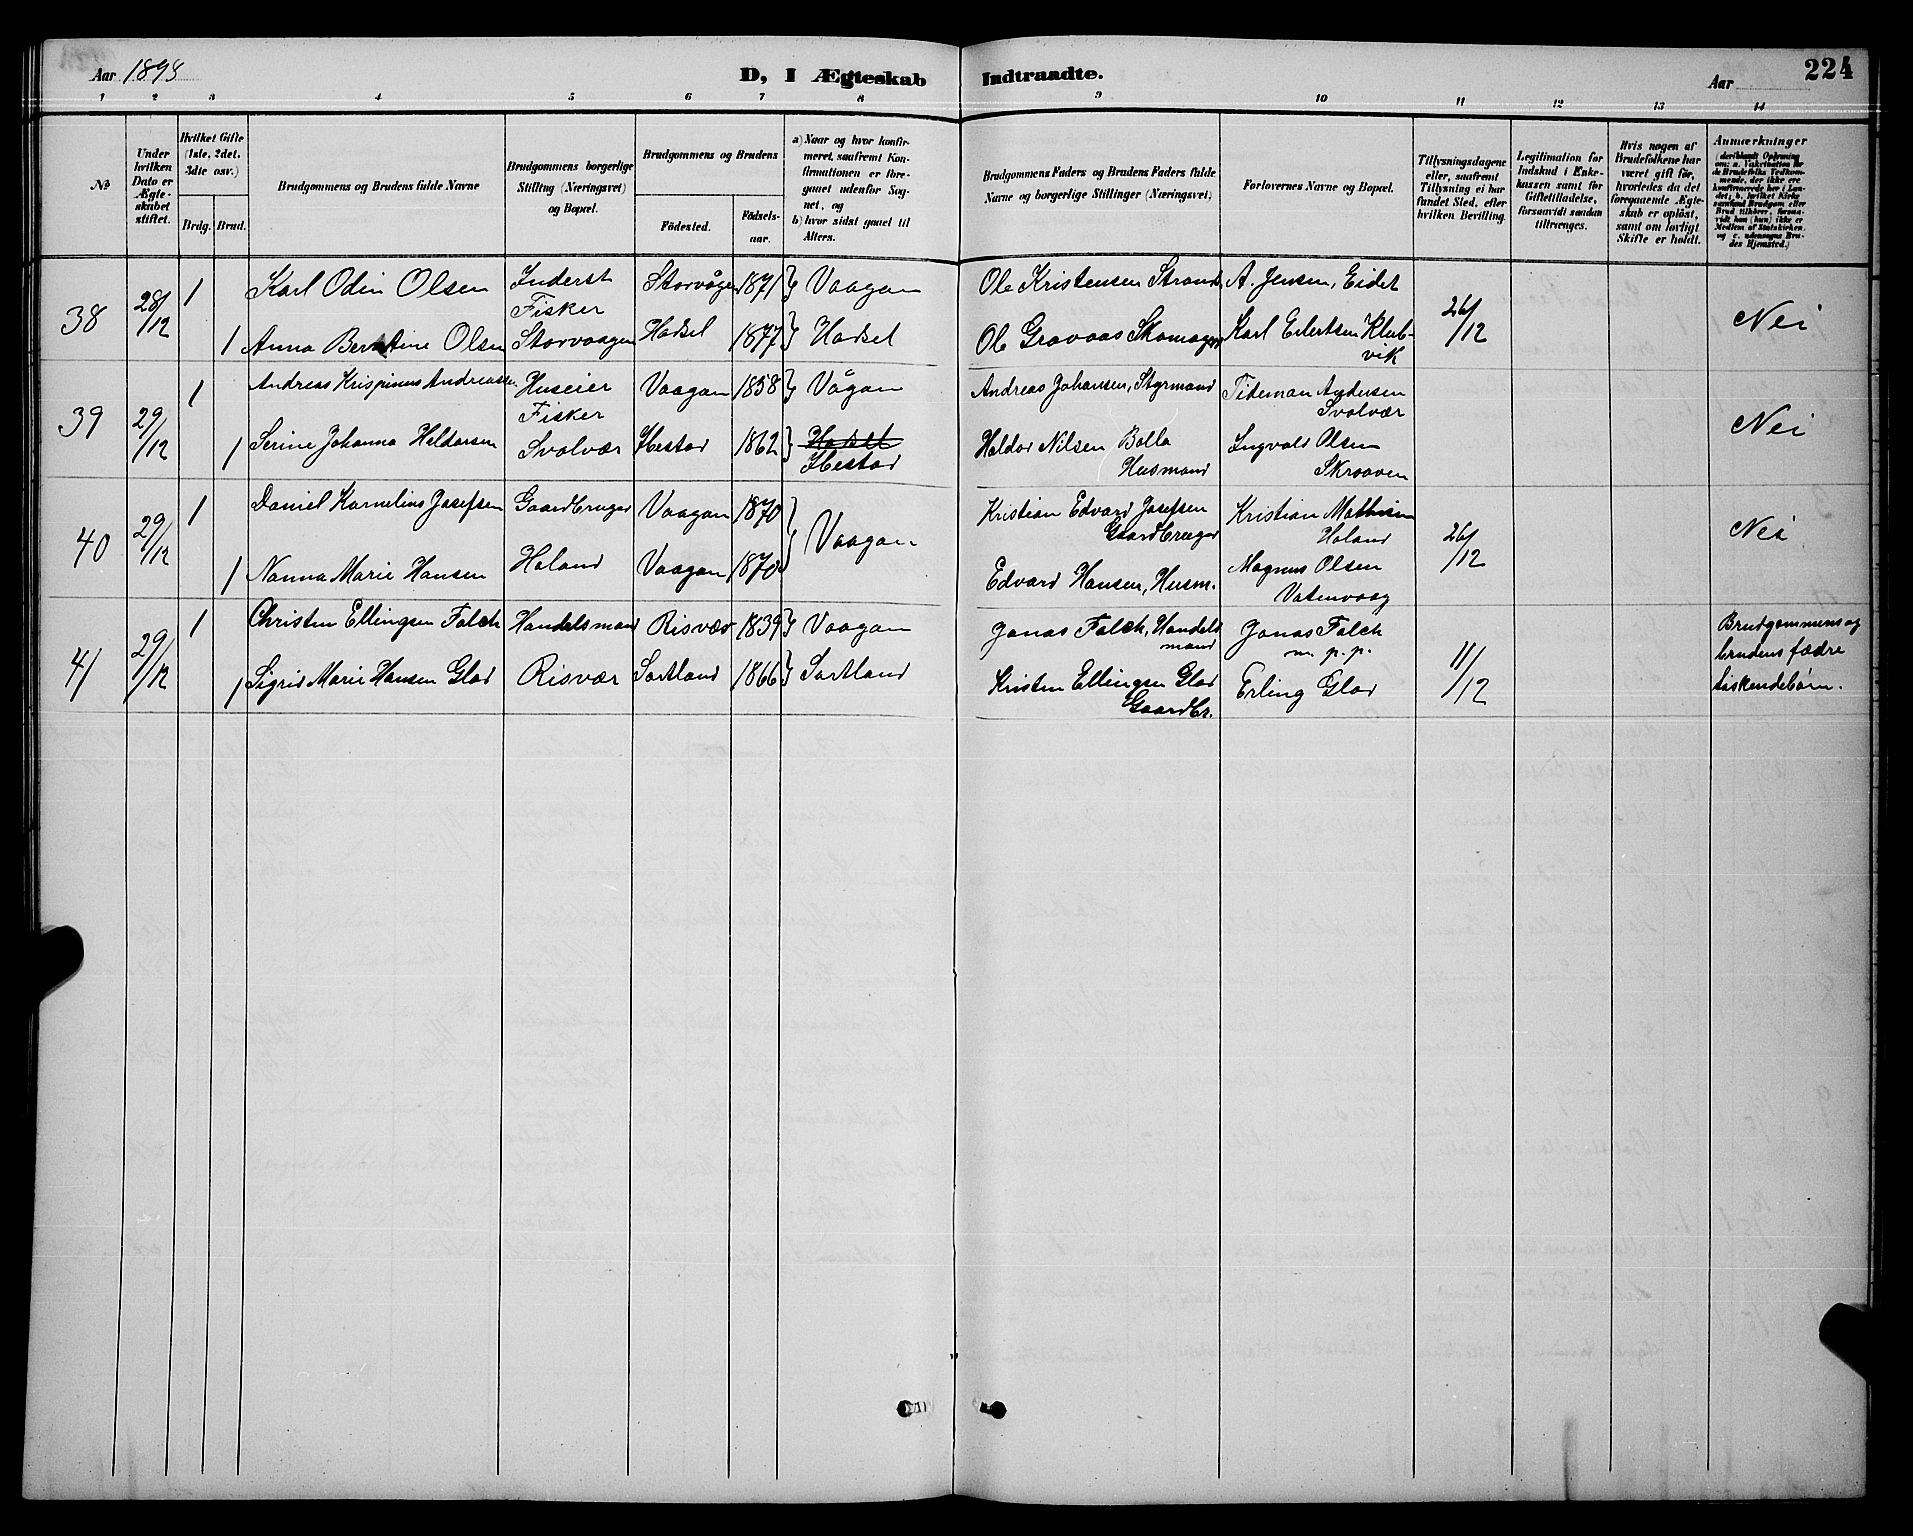 Aar 1898
D, I Ægteskab Indtraadte.
Aar
224
1 2 3 4 5 6 7 8 9 10 11 12 13 14
№
Under hvilken Dato er Ægteskabet stiftet.
Hvilket Gifte (1ste, 2det, 3die osv.)
Brdg. Brud.
Brudgommens og Brudens fulde Navne
Brudgommens borgerlige Stilling (Næringsvei) og Bopæl.
Brudgommens og Brudens
Fødested.
Fødselsaar.
a) Naar og hvor konfirmeret, saafremt Konfirmationen er foregaaet udenfor Sognet, og
b) hvor sidst gaaet til Alters.
Brudgommens Faders og Brudens Faders fulde Navne og borgerlige Stillinger (Næringsvei)
Forlovernes Navne og Bopæl.
Tillysningsdagene eller, saafremt Tillysning ei har fundet Sled, efter hvilken Bevilling.
Legitimation for Indskud i Enkekassen samt for Giftetilladelse, forsaavidt saadan tiltrænges.
Hvis nogen af Brudefolkene har været gift før, hvorledes da det foregaaende Ægteskab er opløst, samt om lovligt Skifte er holdt.
Anmærkninger
38 28/12 1 Karl Odin Olsen Inderst Storvågen 1871 Vaagan Ole Kristensen Strand A. Jensen, Eidet 26/12 Nei
Fisker
1 Anna Berntine Olsen Storvaagen Hadsel 1877 Hadsel Ole Gravaas Skomager Karl Eilertsen Klub-
vik
39 29/12 1 Andreas Krispinus Andreassen Huseier Vaagan 1858 Vågan Andreas Johansen, Styrmand Tideman Andersen Nei
Fisker Svolvær
1 Serine Johanna Heldorsen Svolvær Ibestad 1862 Hadsel Heldor Nilsen Bolla Ingvald Olsen
Ibestad Husmand Skraaven
40 29/12 1 Daniel Kornelius Josefsen Gaardbruger Vaagan 1870 Vaagan Kristian Edvard Josefsen Kristian Mathisen 26/12 Nei
Gaardbruger Holand
1 Nanna Marie Hansen Holand Vaagan 1870 Edvard Hansen, Husm. Magnus Olsen
Vatervaag
41 29/12 1 Christen Ellingsen Falch Handelsmand Risvær 1839 Vaagan Jonas Falch, Handels Jonas Falch 11/12 Brudgommens og
mand m. p. p. brudens fædre
1 Sigrid Marie Hansen Glad Risvær Sortland 1866 Sortland Kristen Ellingsen Glad Erling Glad søskendebørn.
Gaardbr.